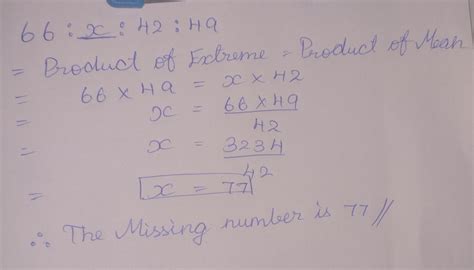 66 : x : 42 : 49
= Product of Extreme = Product of Mean
= 66 × 49 = x × 42
= x = 66 × 49
42
= x = 3234
42
= x = 77
∴ The Missing number is 77 //